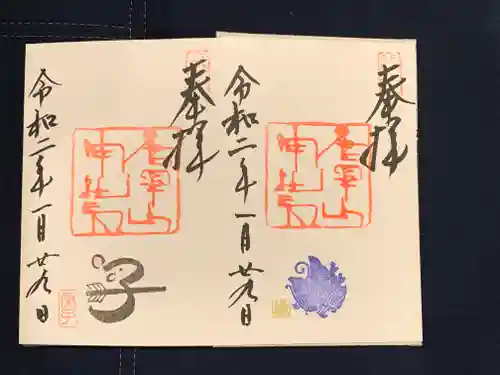 奉拝
唐澤山
神社
令和二年一月廿九日
奉拝
唐澤山
神社
令和二年一月廿九日
子